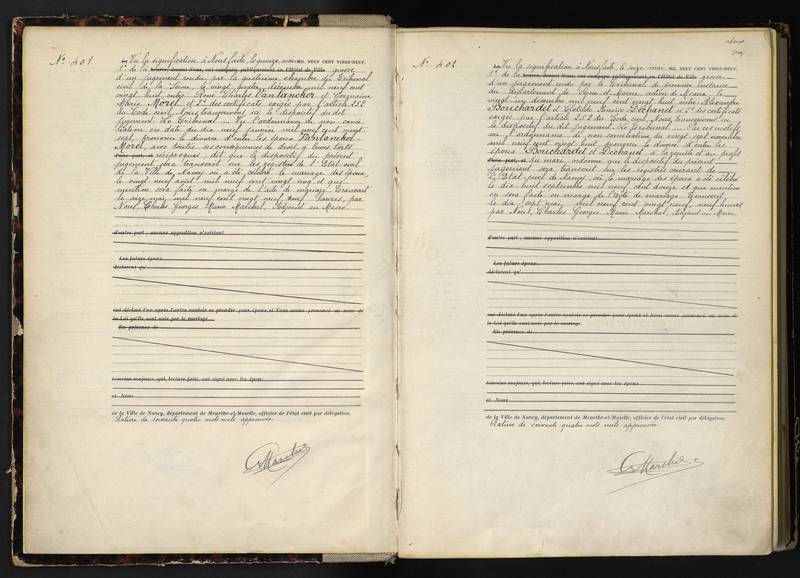 N° 401
Vu la signification à Nous faite, le quinze mai MIL NEUF CENT VINGT-NEUF,
1° de la grosse
d'un jugement rendu par la quatrième chambre du Tribunal
civil de la Seine, le vingt quatre décembre mil neuf cent
vingt huit entre René Charles Vantanchor et Georgeanne
Marie Morel et 2° des certificats exigés par l'article 252
du Code civil, Nous transcrivons ici le dispositif du dit
jugement. Le Tribunal — Vu l'ordonnance de non conci
liation en date du neuf janvier mil neuf cent vingt
sept, prononce le divorce d'entre les époux Vantanchor
Morel, avec toutes ses conséquences de droit, à leurs torts
réciproques, dit que le dispositif du présent
jugement sera transcrit sur les registres de l'Etat civil
de la Ville de Nancy où a été célébré le mariage des époux,
le vingt neuf avril mil neuf cent vingt cinq et que
mention sera faite en marge de l'acte de mariage. Transcrit
le seize mai mil neuf cent vingt neuf, neuf heures, par
Nous, Charles Georges Marie Marchal, Adjoint au Maire.
d'autre part ; aucune opposition n'existant
Les futurs époux
déclarent qu'
ont déclaré l'un après l'autre vouloir se prendre pour époux et Nous avons prononcé au nom de
la Loi qu'ils sont unis par le mariage.
En présence de
témoins majeurs, qui, lecture faite, ont signé avec les époux
et Nous
de la Ville de Nancy, département de Meurthe-et-Moselle, officier de l'état civil par délégation.
Rature de soixante quatre mots nuls approuvée
GMarchal
N° 402
Vu la signification à Nous faite, le seize mai MIL NEUF CENT VINGT-NEUF,
1° de la grosse
d'un jugement rendu par le Tribunal de première instance
du département de Seine et Marne, section de Meaux, le
vingt un décembre mil neuf cent vingt huit entre Alexandre
Bouchardet et Clotilde Déchand et 2° des certificats
exigés par l'article 252 du Code civil, Nous transcrivons ici
le dispositif du dit jugement. Le Tribunal — Par ces motifs
Vu l'ordonnance de non conciliation du vingt sept novembre
mil neuf cent vingt huit prononce le divorce d'entre les
époux Bouchardet et Déchand, à la requête et au profit
du mari, ordonne que le dispositif du présent
jugement sera transcrit sur les registres courants de
l'Etat civil de Nancy, où le mariage des époux a été célébré
le dix huit septembre mil neuf cent douze et que mention
en sera faite en marge de l'acte de mariage. Transcrit
le dix sept mai mil neuf cent vingt neuf, neuf heures
par Nous, Charles Georges Marie Marchal, Adjoint au Maire.
d'autre part ; aucune opposition n'existant
Les futurs époux
déclarent qu'
ont déclaré l'un après l'autre vouloir se prendre pour époux et Nous avons prononcé au nom de
la Loi qu'ils sont unis par le mariage.
En présence de
témoins majeurs, qui, lecture faite, ont signé avec les époux
et Nous
de la Ville de Nancy, département de Meurthe-et-Moselle, officier de l'état civil par délégation.
Rature de soixante quatre mots nuls approuvée
GMarchal